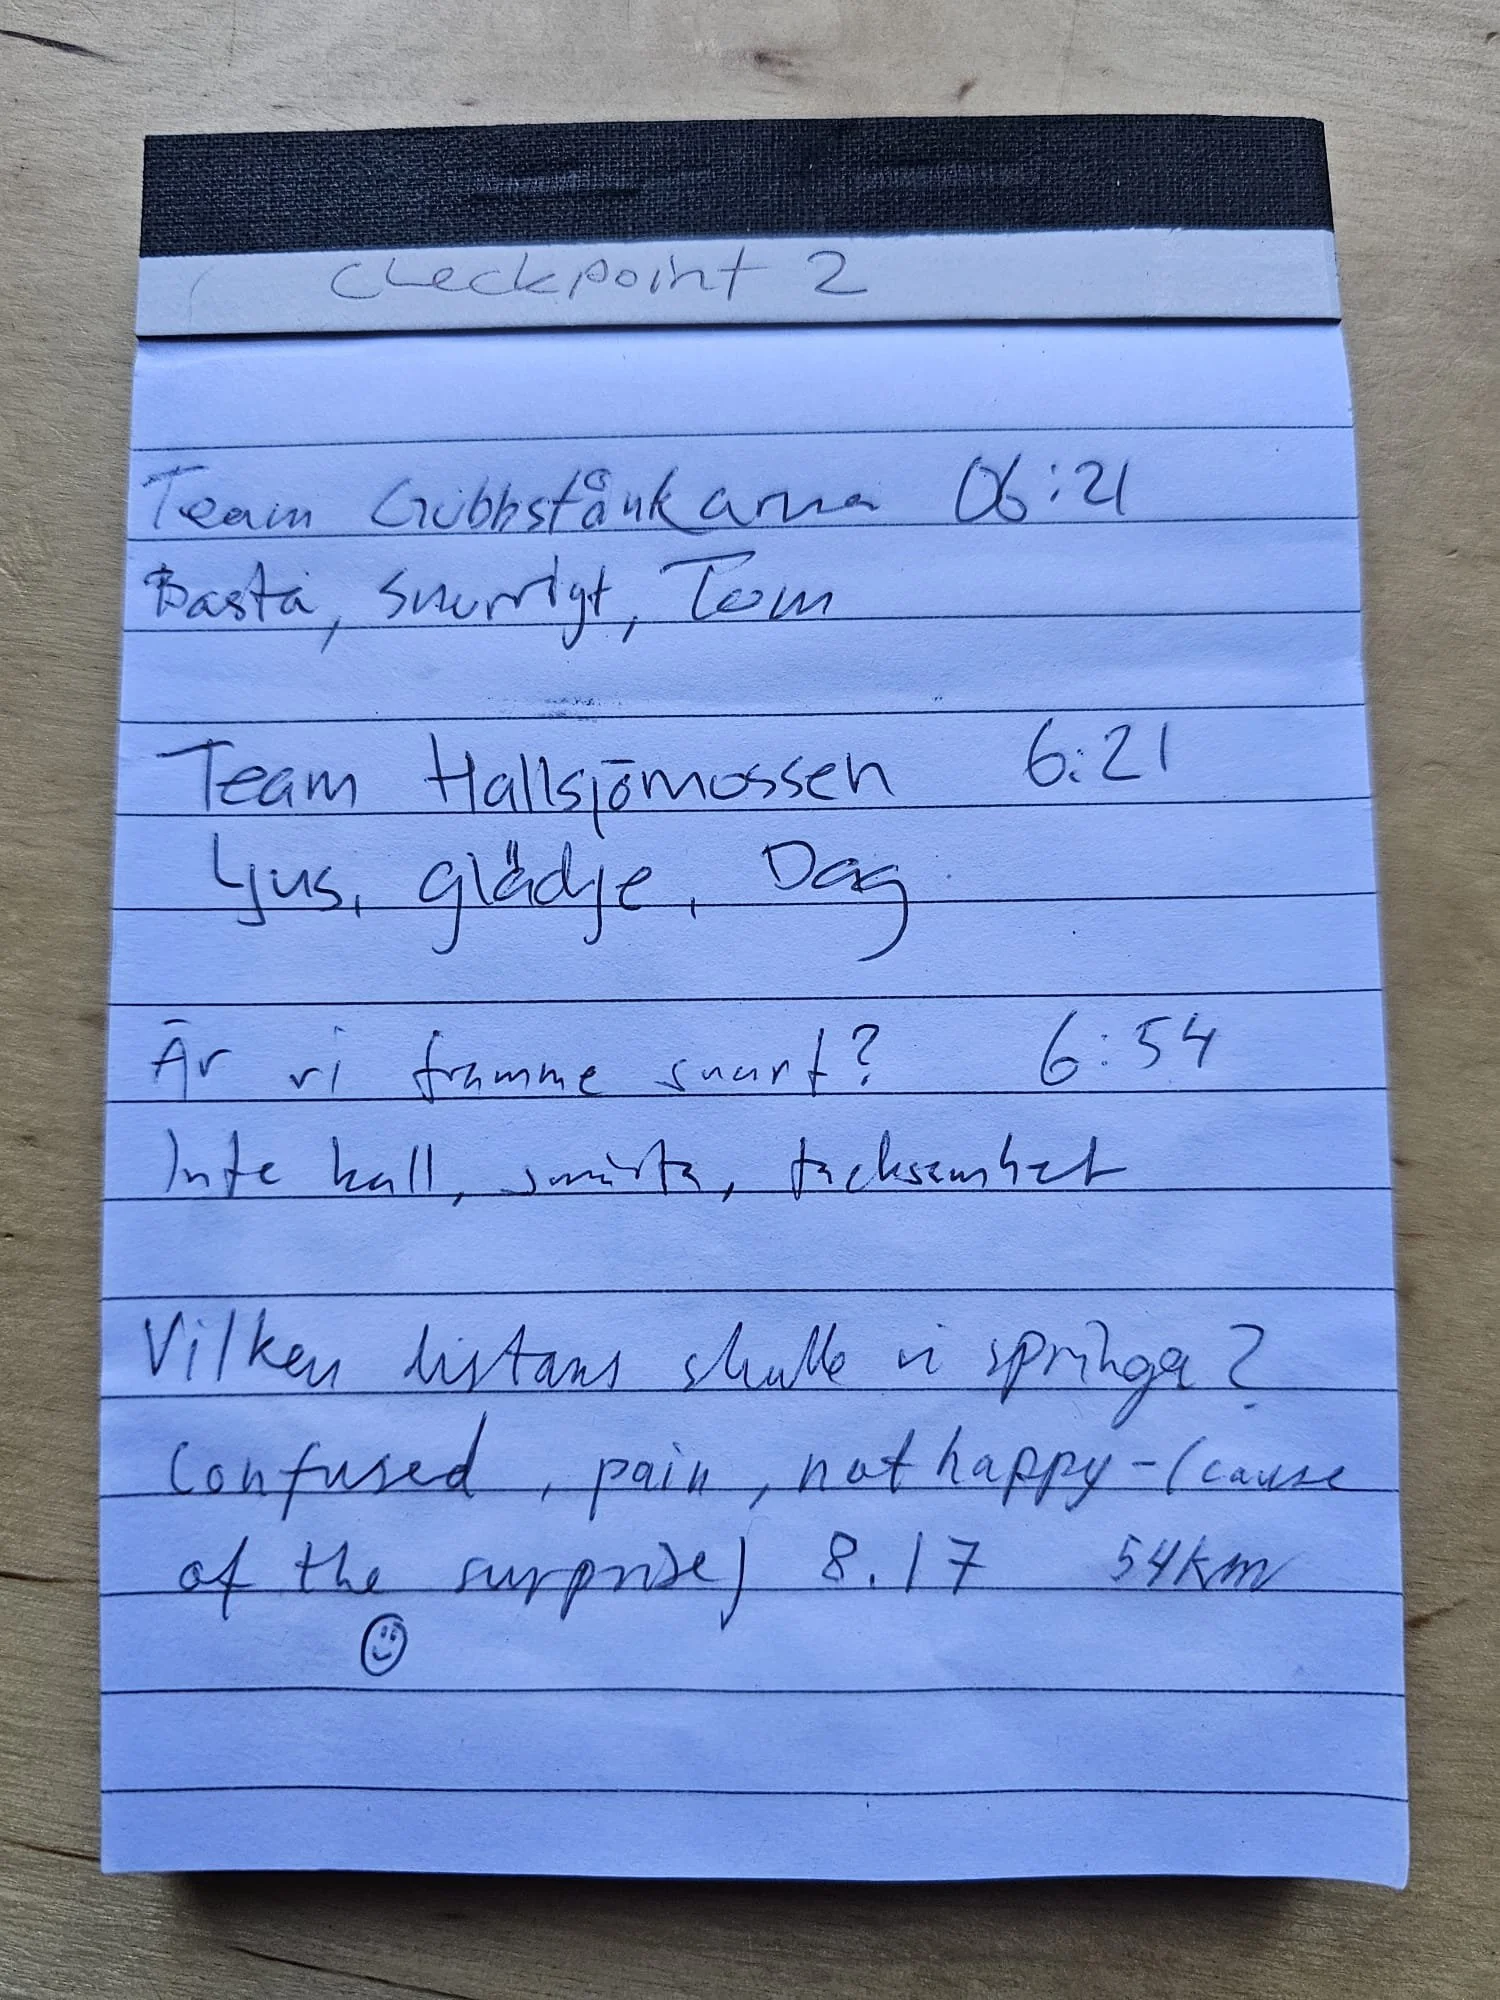 Checkpoint 2
Team Gubbstånkarna 06:21
Basta, snurrigt, Tom
Team Hallsjömossen 6:21
Ljus, glädje, Dag
Är vi framme snart? 6:54
Inte kall, smärta, tacksamhet
Vilken distans skulle vi springa?
Confused, pain, not happy - (cause
of the surprise) 8.17 54km